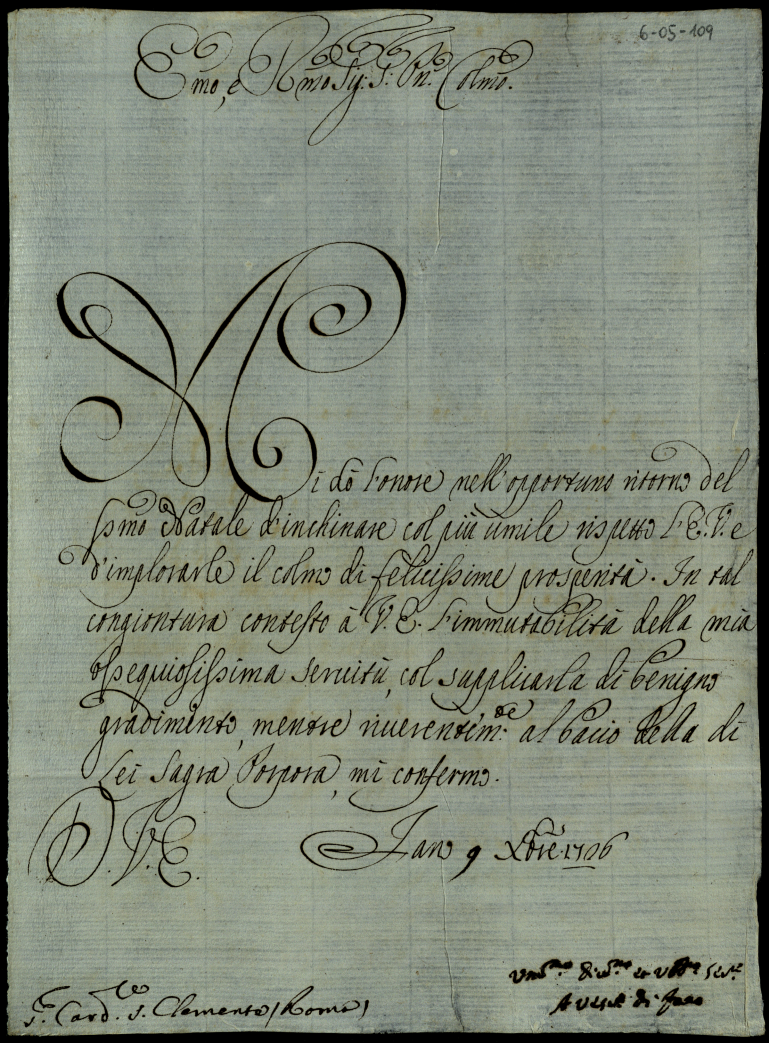 6-05-109
Emo, e Rmo Sig: S: Pn: Colmo.
Mi dò l'onore nell'opportuno ritorno del
Ssmo Natale d'inchinare col più umile rispetto l'E.V. e
d'implorarle il colmo di felicissime prosperità. In tal
congiontura contesto à V.E. l'immutabilità della mia
ossequiosissima servitù, col supplicarla di benigno
gradimento, mentre riuerentem:te al bacio della di
Lei Sagra Porpora, mi confermo.
D. V. E. Fano 9 Xbre 1706
S.r Card.le S. Clemente (Roma)
di Fano